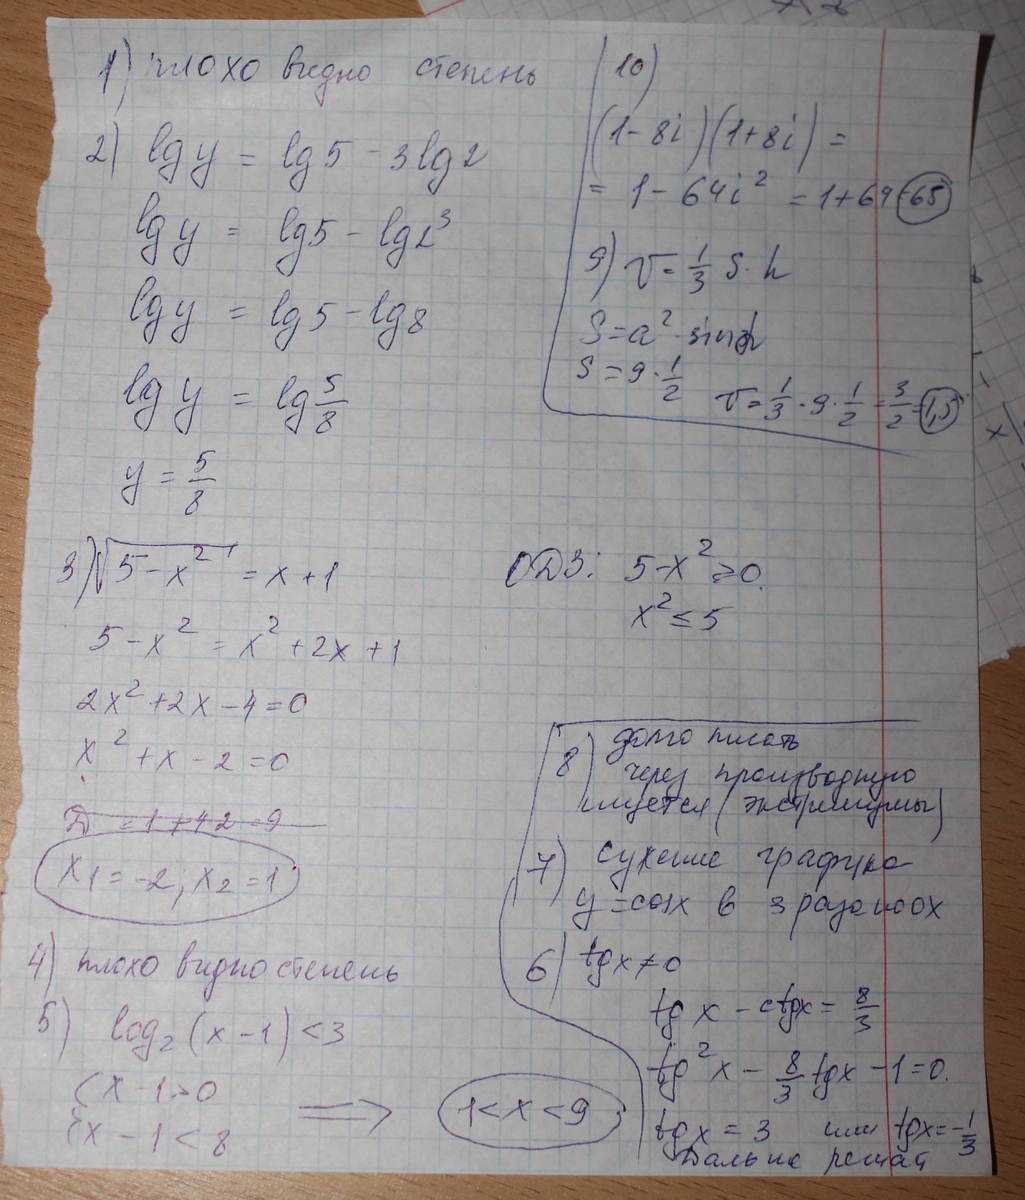 1) плохо видно степень
2) lg y = lg 5 - 3 lg 2
lg y = lg 5 - lg 2³
lg y = lg 5 - lg 8
lg y = lg 5/8
y = 5/8
3) √(5 - x²) = x + 1
ОДЗ: 5 - x² ≥ 0
x² ≤ 5
5 - x² = x² + 2x + 1
2x² + 2x - 4 = 0
x² + x - 2 = 0
x₁ = -2; x₂ = 1
4) плохо видно степень
5) log₂ (x - 1) < 3
{ x - 1 > 0
{ x - 1 < 8
⟹ 1 < x < 9
10)
(1 - 8i)(1 + 8i) =
= 1 - 64i² = 1 + 64 = 65
9) V = 1/3 S · h
S = a² · sin
S = 9 · 1/2
V = 1/3 · 9 · 1/2 = 3/2 = 1,5
8) долго писать
через производную
ищется (экстримумы)
7) сужение графика
y = cos x в 3 раза по ox
6) tg x ≠ 0
tg x - ctg x = 8/3
tg² x - 8/3 tg x - 1 = 0.
tg x = 3 или tg x = -1/3
Дальше решай